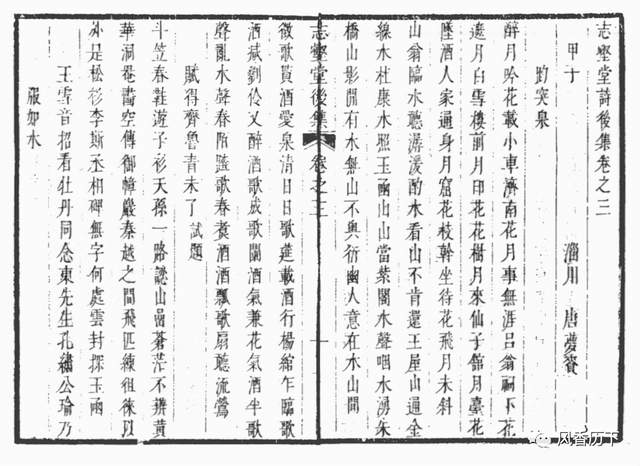 志壑堂詩後集卷之三
淄川 唐夢賚
甲子
趵突泉
醉月吟花載小車濟南花月事無涯呂翁祠下花
邊月白雪樓前月印花花樹月來仙子館月臺花
墜酒人家通身月窟花枝幹坐待花飛月未斜
山翁臨水聽潺湲酌水看山不肯還王屋山通金
線水杜康水照玉函山山當紫闥水聲咽水湧朱
橋山影閒有水無山不與衍幽人意在水山間
志壑堂後集 卷之三 十
徵歌貰酒愛泉清日日歌筵載酒行楊綰乍臨歌
酒減劉伶又醉酒歌成歌闌酒氣兼花氣酒半歌
聲亂水聲春陌踏歌春煮酒酒飄歌扇聽流鶯
賦得齊魯青未了 試題
斗笠春鞋遊子衫天孫一路謎山嵒蒼茫不辨黃
華洞罨畫空傳御幛巖春趂之間飛匹練徂徠以
外是松杉李斯丞相碑無字何處雲封探玉函
王雪音招看牡丹同念東先生孔繡公瑜乃
服如水
风香历下